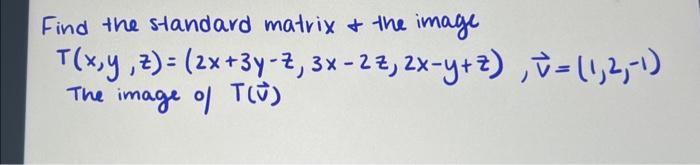 Find the standard matrix & the image
T(x,y,z)=(2x+3y-z, 3x-2z, 2x-y+z), v⃗=(1,2,-1)
The image of T(v⃗)